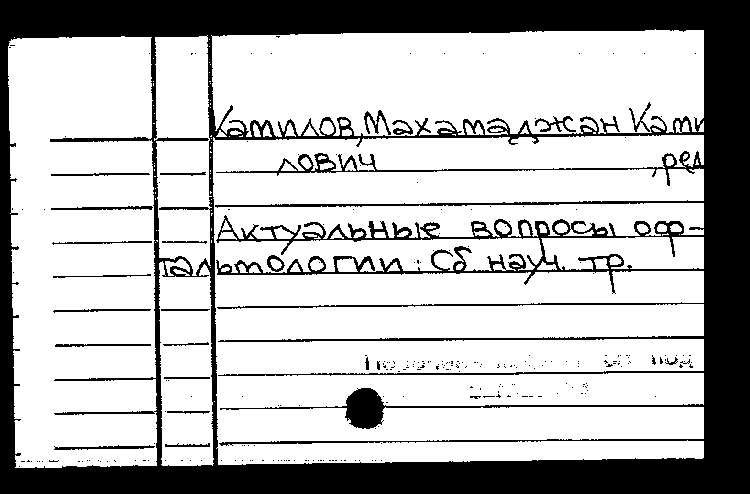 Камилов, Махамаджан Ками
лович ,ред
Актуальные вопросы оф-
тальмологии : Сб науч. тр.
под